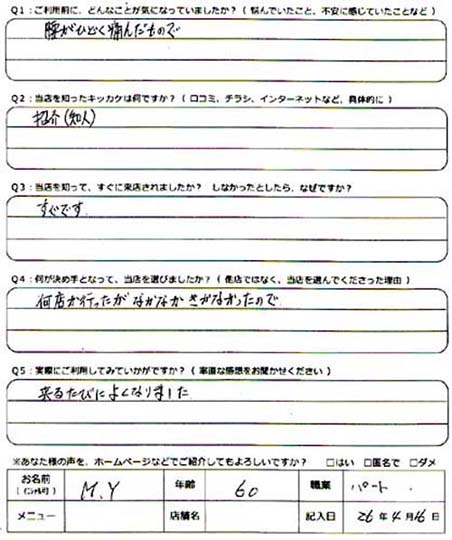 Q1:ご利用前に、どんなことが気になっていましたか?(悩んでいたこと、不安に感じていたことなど)
腰がひどく痛んだもので
Q2:当店を知ったキッカケは何ですか?(口コミ、チラシ、インターネットなど、具体的に)
紹介(知人)
Q3:当店を知って、すぐに来店されましたか? しなかったとしたら、なぜですか?
すぐです
Q4:何が決め手となって、当店を選びましたか?(他店ではなく、当店を選んでくださった理由)
何店か行ったがなかなかきかなかったので
Q5:実際にご利用してみていかがですか?(率直な感想をお聞かせください)
来るたびによくなりました
※あなた様の声を、ホームページなどでご紹介してもよろしいですか? □はい □匿名で □ダメ
お名前 (イニシャル可) M.Y 年齢 60 職業 パート
メニュー 店舗名 記入日 26年4月16日